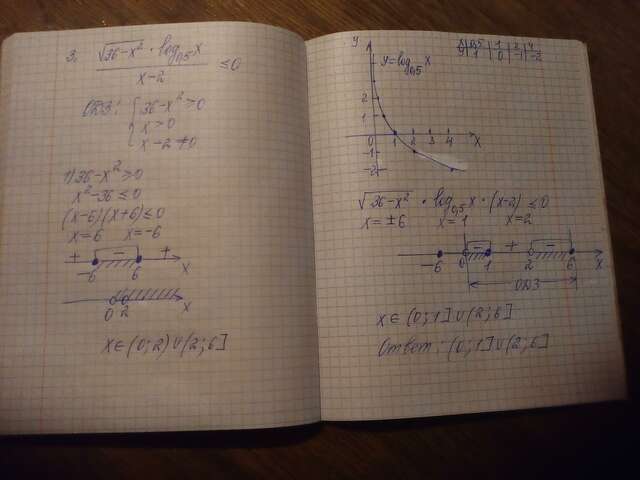 3. √36-x² · log₀,₅x / x-2 ≤0
ОДЗ: { 36-x²≥0
x>0
x-2≠0
1) 36-x²≥0
x²-36≤0
(x-6)(x+6)≤0
x=6 x=-6
+ - +
-6 6 x
0 2 x
x∈(0;2)∪(2;6]
x 0,5 1 2 4
y 1 0 -1 -2
y
y=log₀,₅x
2
1
0 1 2 3 4 x
-1
-2
√36-x² · log₀,₅x · (x-2) ≤0
x=±6 x=1 x=2
- + -
-6 0 1 2 6 x
ОДЗ
x∈(0;1]∪(2;6]
Ответ: (0;1]∪(2;6]